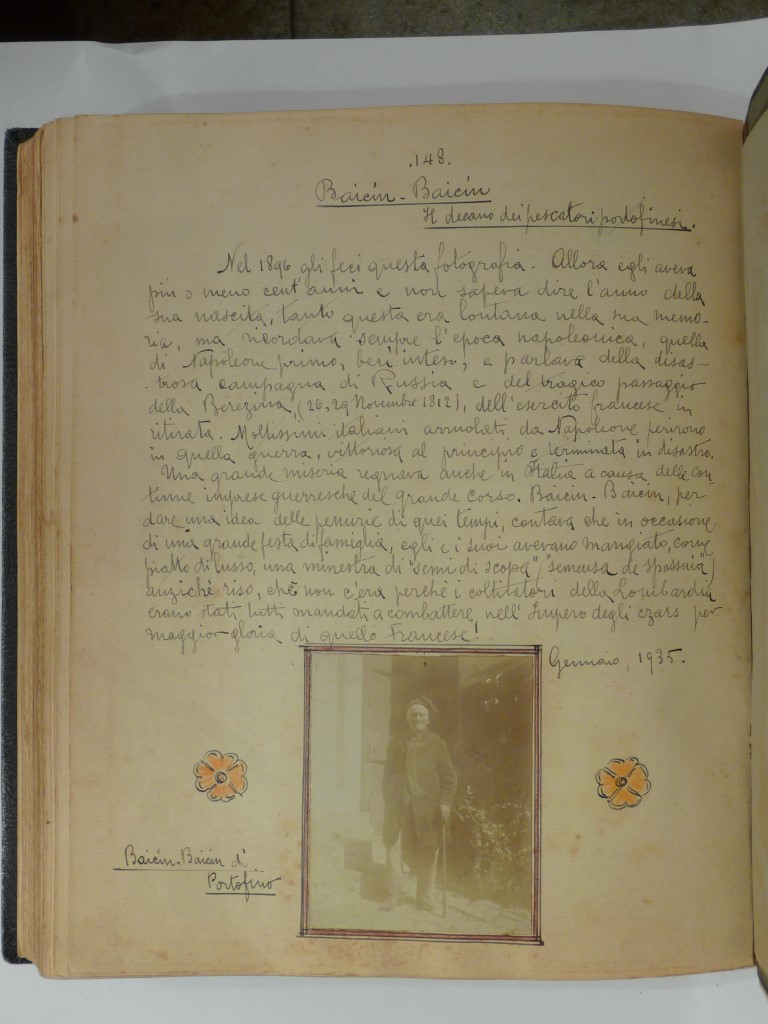 .148.
Baicin-Baicin
Il decano dei pescatori portofinesi.
Nel 1896 gli feci questa fotografia. Allora egli aveva
più o meno cent'anni e non sapeva dire l'anno della
sua nascita, tanto questa era lontana nella sua memo-
ria, ma ricordava sempre l'epoca napoleonica, quella
di Napoleone primo, ben inteso, e parlava della disas-
trosa campagna di Russia e del tragico passaggio
della Berezina, (26,29 Novembre 1812), dell'esercito francese in
ritirata. Moltissimi italiani arruolati da Napoleone perirono
in quella guerra, vittoriosa al principio e terminata in disastro.
Una grande miseria regnava anche in Italia a causa delle con-
tinue imprese guerresche del grande corso. Baicin-Baicin, per
dare una idea delle penurie di quei tempi, contava che in occasione
di una grande festa di famiglia, egli e i suoi avevano mangiato, come
piatto di lusso, una minestra di "semi di scopa" ("semensa de spassuia")
anzichè riso, chè non c'era perchè i coltitatori della Lombardia
erano stati tutti mandati a combattere nell'Impero degli czars per
maggior gloria di quello Francese!
Gennaio, 1935.
Baicin-Baicin di
Portofino